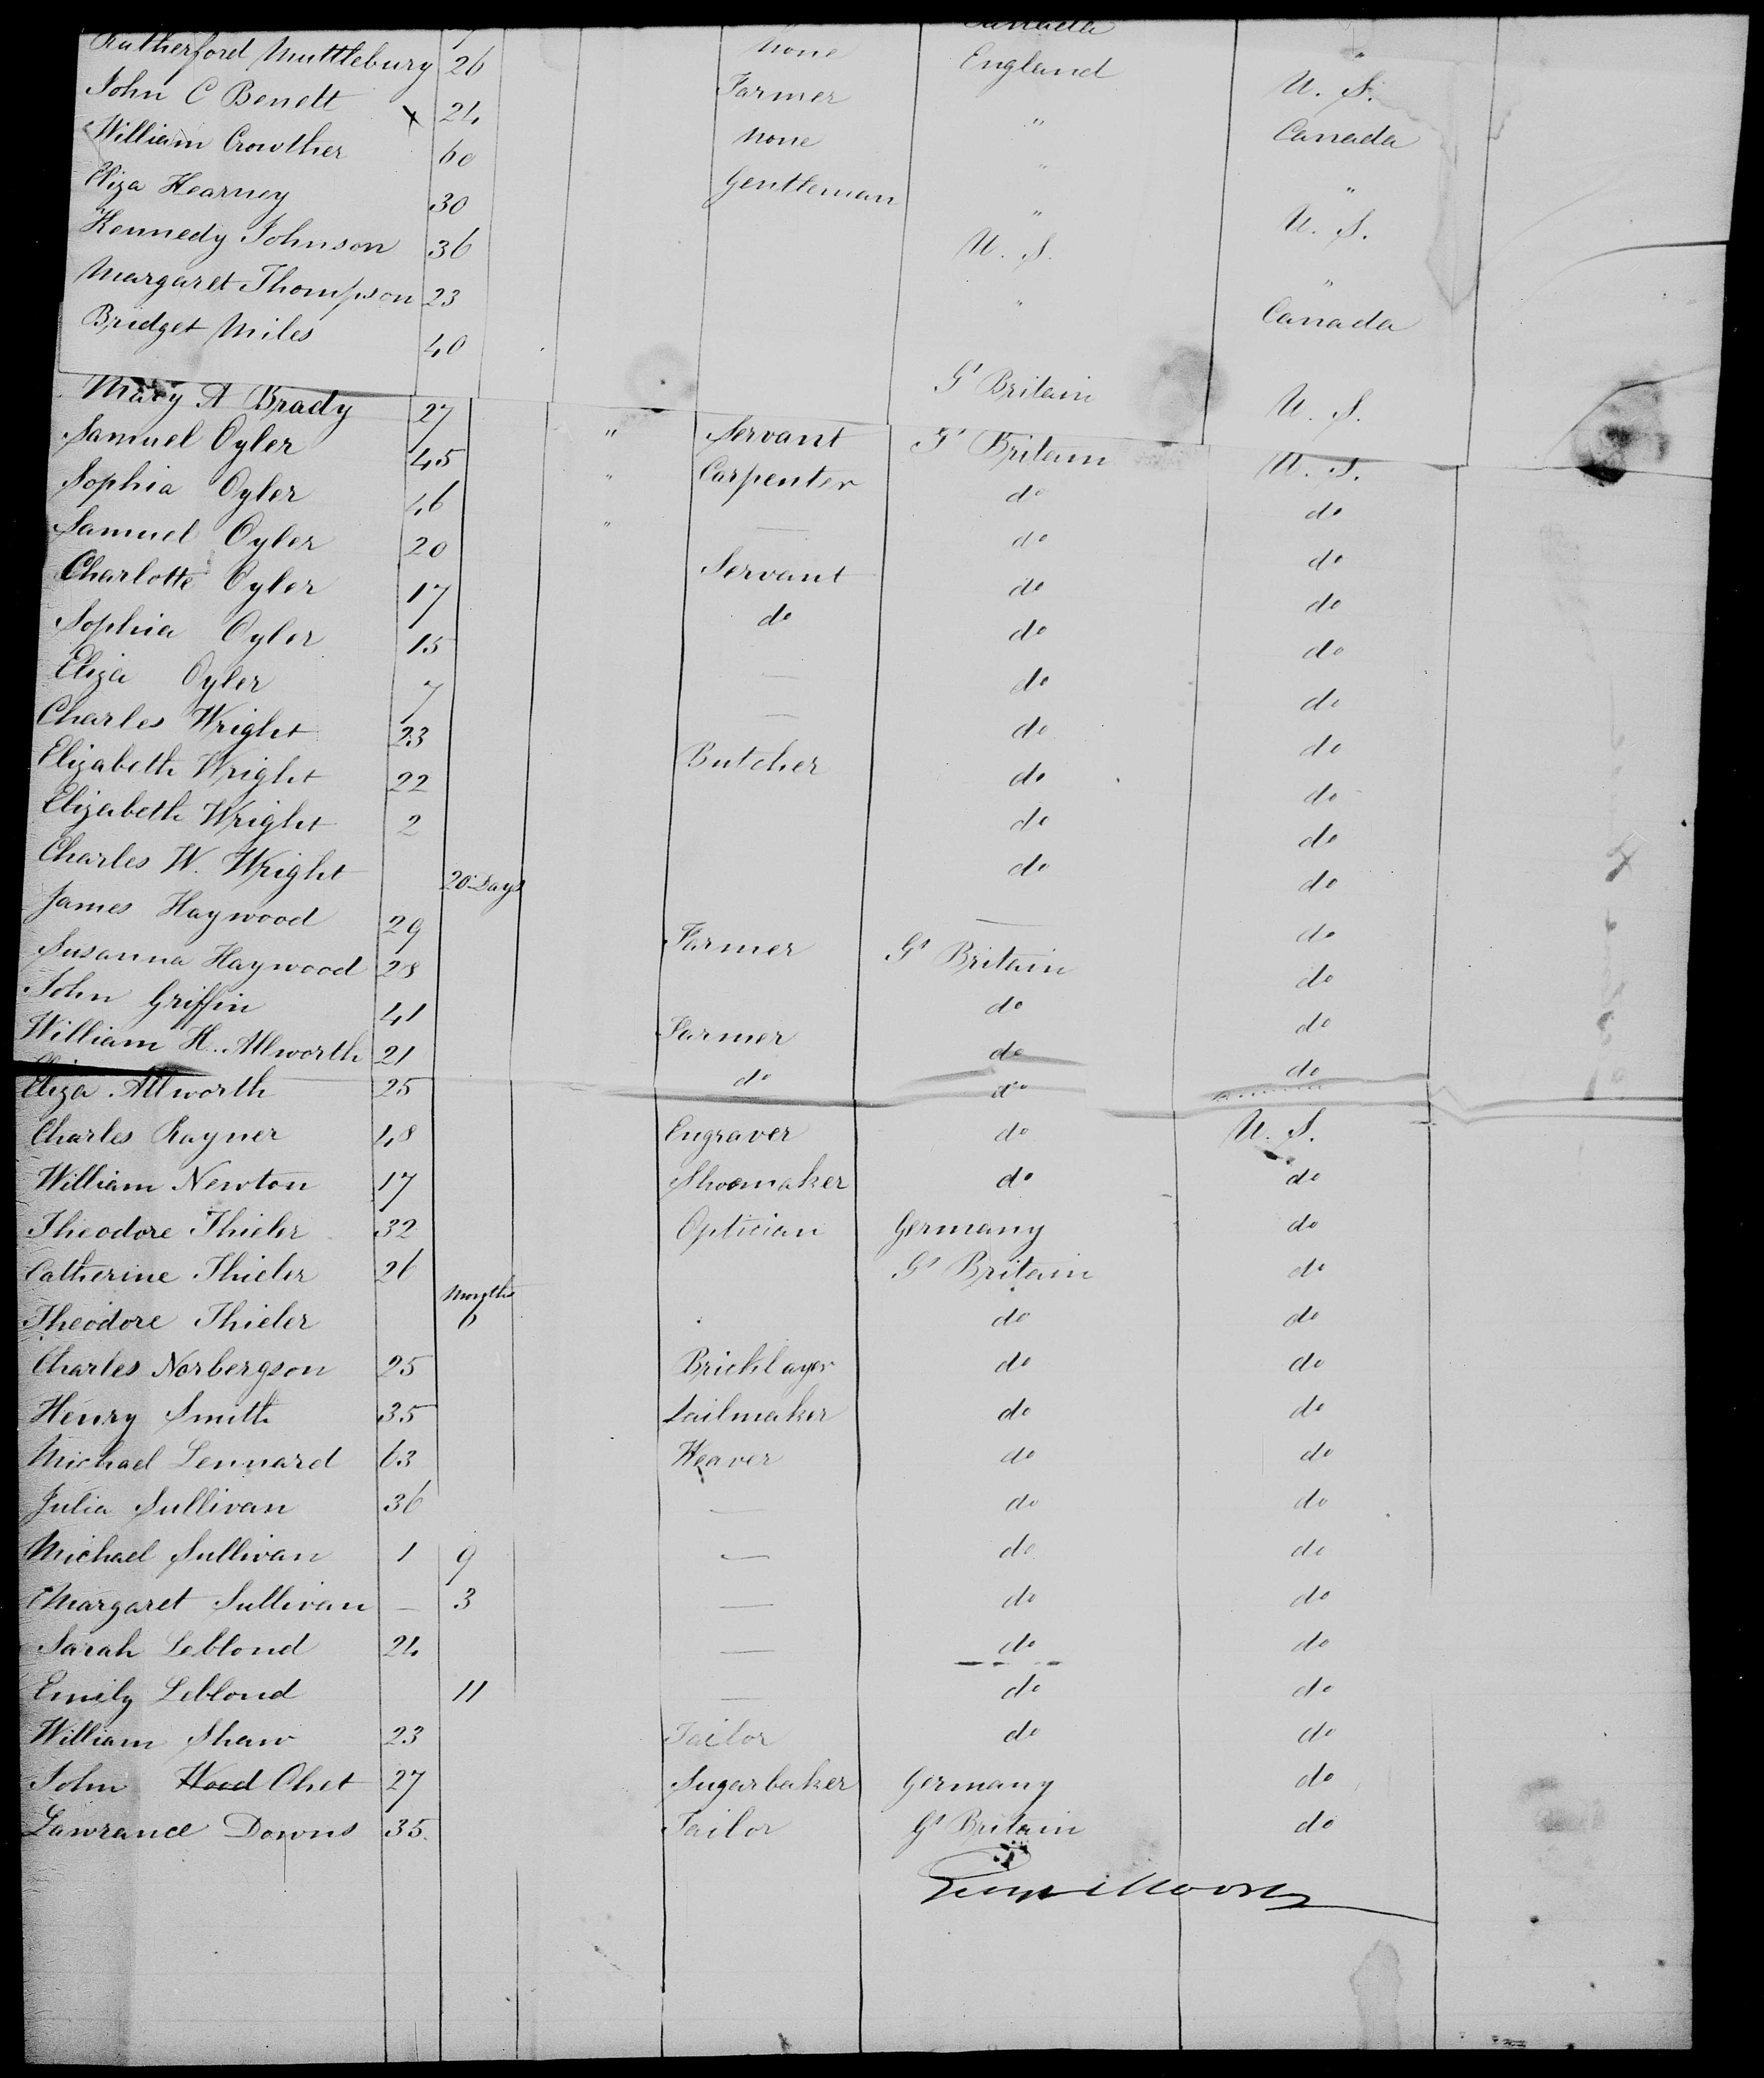 Canada
Rutherford Muttlebury 26 None England "
John C Benett 24 Farmer " U. S.
William Crowther 60 None " Canada
Eliza Hearney 30 Gentleman " "
Kennedy Johnson 36 U. S. U. S.
Margaret Thompson 23 " "
Bridget Miles 40 Canada
Gt Britain U. S.
Mary A Brady 27 " Servant Gt Britain U. S.
Samuel Oyler 45 " Carpenter do do
Sophia Oyler 46 " — do do
Samuel Oyler 20 Servant do do
Charlotte Oyler 17 do do do
Sophia Oyler 15 — do do
Eliza Oyler 7 — do do
Charles Wright 23 Butcher do do
Elizabeth Wright 22 do do
Elizabeth Wright 2 do do
Charles W. Wright 20 Days — do
James Haywood 29 Farmer Gt Britain do
Susanna Haywood 28 do do
John Griffin 41 Farmer do do
William H. Allworth 21 do do do
Eliza Allworth 25 do
Charles Rayner 48 Engraver do U. S.
William Newton 17 Shoemaker do do
Theodore Thieler 32 Optician Germany do
Catherine Thieler 26 Gt Britain do
Theodore Thieler Months 6 do do
Charles Norbergson 25 Bricklayer do do
Henry Smith 35 Sailmaker do do
Michael Lennard 63 Weaver do do
Julia Sullivan 36 — do do
Michael Sullivan 1 9 — do do
Margaret Sullivan — 3 — do do
Sarah Leblond 24 — do do
Emily Leblond 11 — do do
William Shaw 23 Tailor do do
John Wood Ohet 27 Sugarbaker Germany do
Lawrance Downs 35 Tailor Gt Britain do